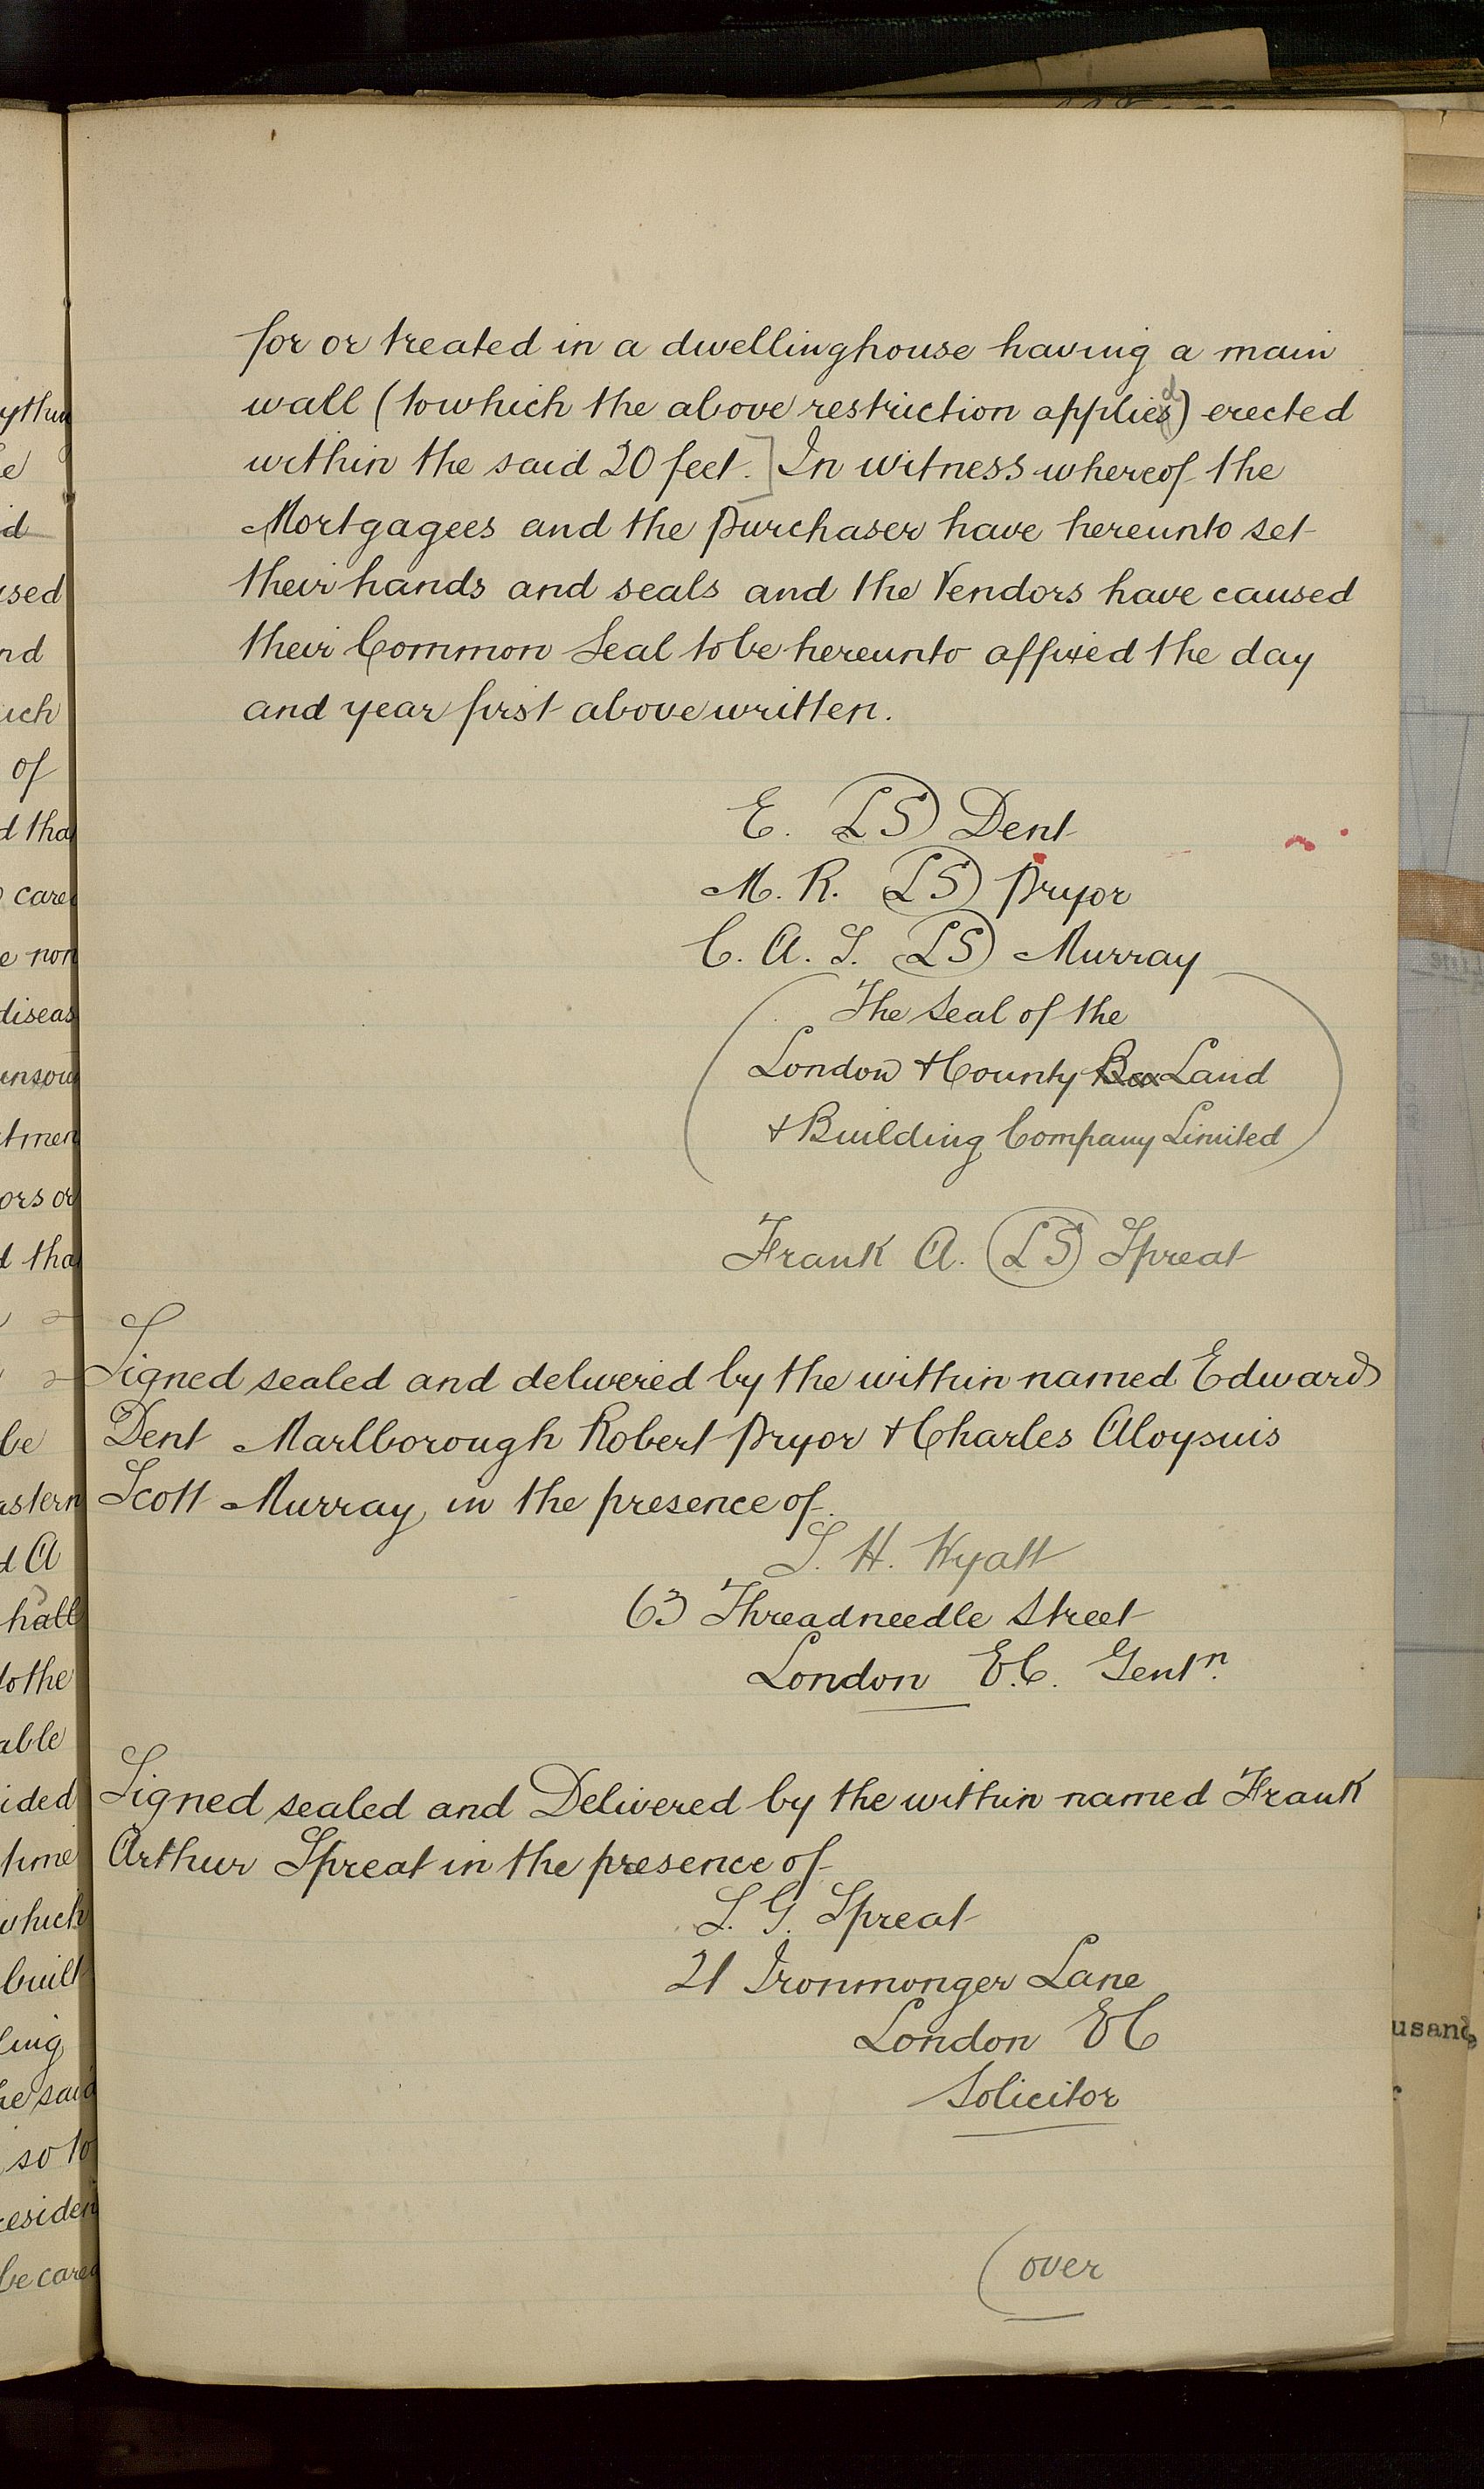 for or treated in a dwellinghouse having a main
wall (to which the above restriction applied) erected
within the said 20 feet.] In witness whereof the
Mortgagees and the Purchaser have hereunto set
their hands and seals and the Vendors have caused
their Common Seal to be hereunto affixed the day
and year first above written.
E. LS Dent
M. R. LS Pryor
C. A. S. LS Murray
The Seal of the
London & County Land
& Building Company Limited
Frank A. LS Spreat
Signed sealed and delivered by the within named Edward
Dent Marlborough Robert Pryor & Charles Aloysuis
Scott Murray in the presence of
S. H. Wyatt
63 Threadneedle Street
London E.C. Gentn.
Signed sealed and Delivered by the within named Frank
Arthur Spreat in the presence of
S. G. Spreat
21 Ironmonger Lane
London EC
Solicitor
(over